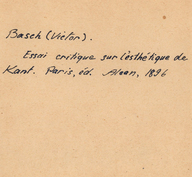 Basch (Victor).
Essai critique sur l'esthétique de
Kant. Paris, éd. Alcan, 1896